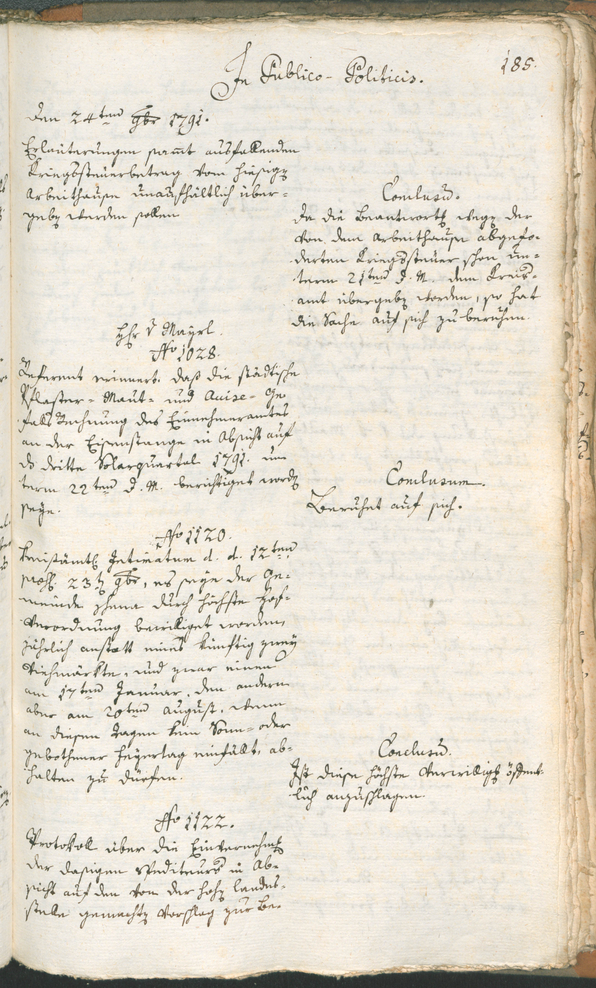 185.
In Publico-Politicis.
den 24ten 9br 1791.
Erläuterungen samt ausfallenden
Kriegssteuerbetrag vom hiesigen
Arbeithause unaufhältlich über-
geben werden sollen
Conclusum.
da die Beantwortung wegen der
von dem Arbeithause abgefo-
derten Kriegssteuer schon un-
term 21ten d. M. dem Kreis-
amt übergeben worden, so hat
die Sache auf sich zu beruhen.
Hr v Mayrl.
No 1028.
Referent erinnert, daß die städtische
Pflaster- Maut- und Accise- Ge-
fälls Rechnung des Einnehmeramtes
an der Eisenstange in Absicht auf
das dritte Solarquartal 1791. un-
term 22ten d. M. berichtiget worden
seye.
Conclusum.
Beruhet auf sich.
No 1120.
Kreisämtl. Intimatum d. d. 12ten
23ten 9br, es seye der Ge-
meinde durch höchste Hof-
verordnung bewilliget worden,
jährlich anstatt eines künftig zwey
Viehmärkte, und zwar einen
am 17ten Januar, den andern
aber am 20ten August, wenn
an diesen Tagen kein Sonn- oder
gebothener Feyertag einfällt, ab-
halten zu dürfen.
Conclusum.
Ist diese höchste Verwilligung öffent-
lich anzuschlagen.
No 1122.
Protokoll über die Einvernehmung
der dasigen Spediteurs in Ab-
sicht auf den von der hohen Landes-
stelle gemachten Vorschlag zur Be-